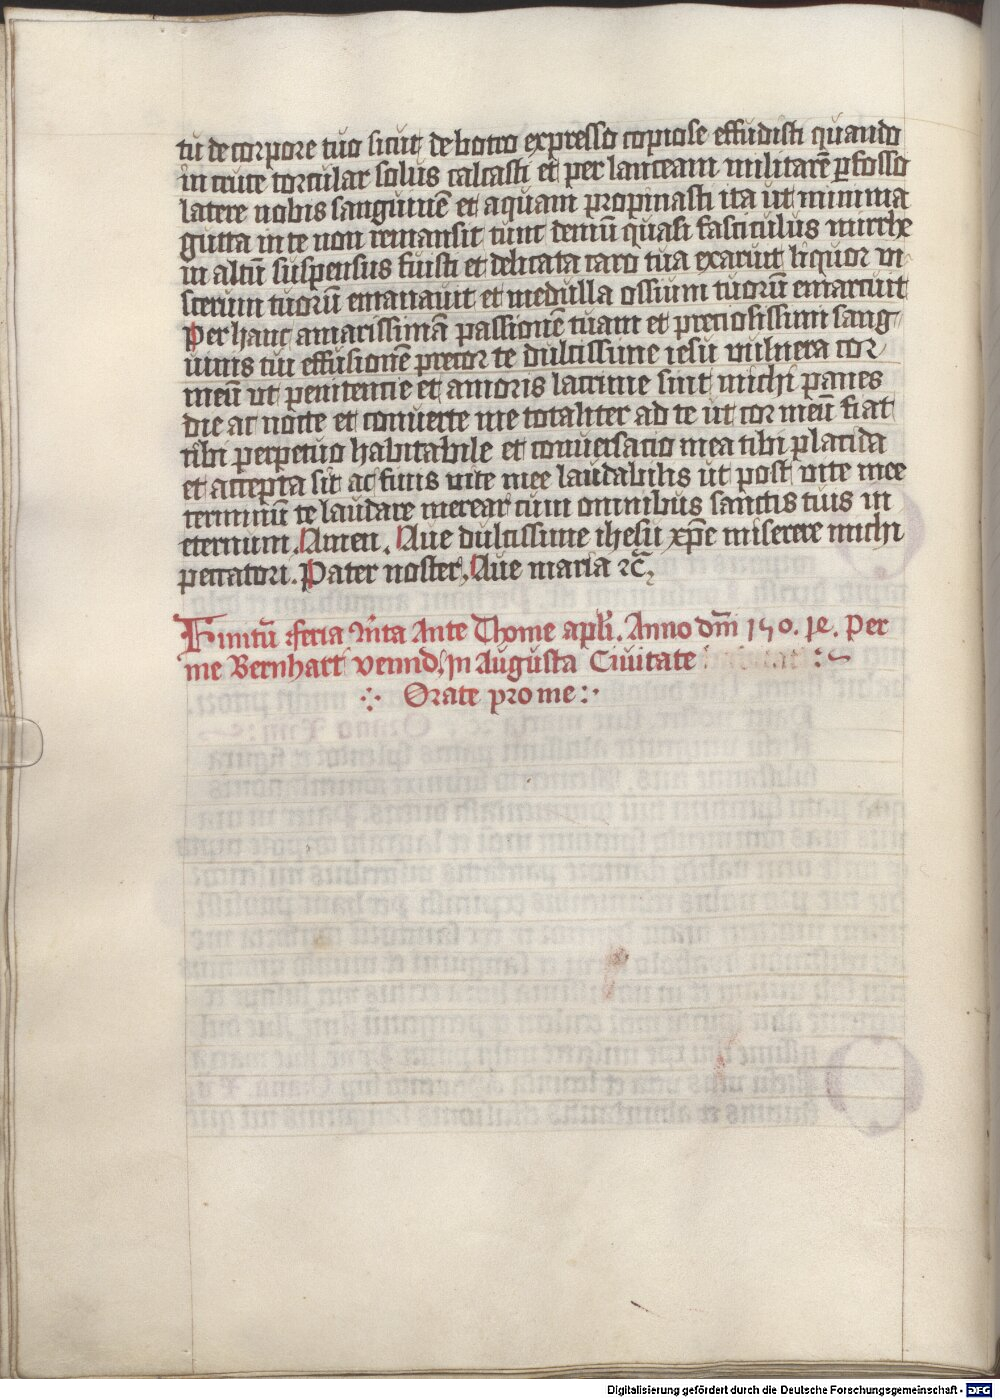 tu de corpore tuo sicut de botro expresso copiose effudisti quando
in cruce torcular solus calcasti et per lanceam militarē ꝑfosso
latere nobis sanguinē et aquam propinasti ita ut minima
gutta in te non remansit tunc demū quasi fasciculus mirrhe
in altū suspensus fuisti et delicata caro tua exaruit liquor vi
scerum tuorū emanauit et medulla ossium tuorū emarcuit
Per hanc amarissimā passionē tuam et preciosissimi sang
uinis tui effusionē precor te dulcissime iesu vulnera cor
meū ut penitentie et amoris lacrime sint michi panes
die ac nocte et conuerte me totaliter ad te ut cor meū fiat
tibi perpetuo habitabile et conuersacio mea tibi placida
et accepta sit ac finis uite mee laudabilis ut post uite mee
terminū te laudare merear cum omnibus sanctis tuis in
eternum. Amen. Aue dulcissime ihesu xp̄e miserere michi
peccatori. Pater noster, Aue maria ⁊c̄,
Finitū feria Ante Thome apl̄i. Anno dm̄i Per
me Bernhart in Augusta Ciuitate
Orate pro me :·
Digitalisierung gefördert durch die Deutsche Forschungsgemeinschaft - DFG